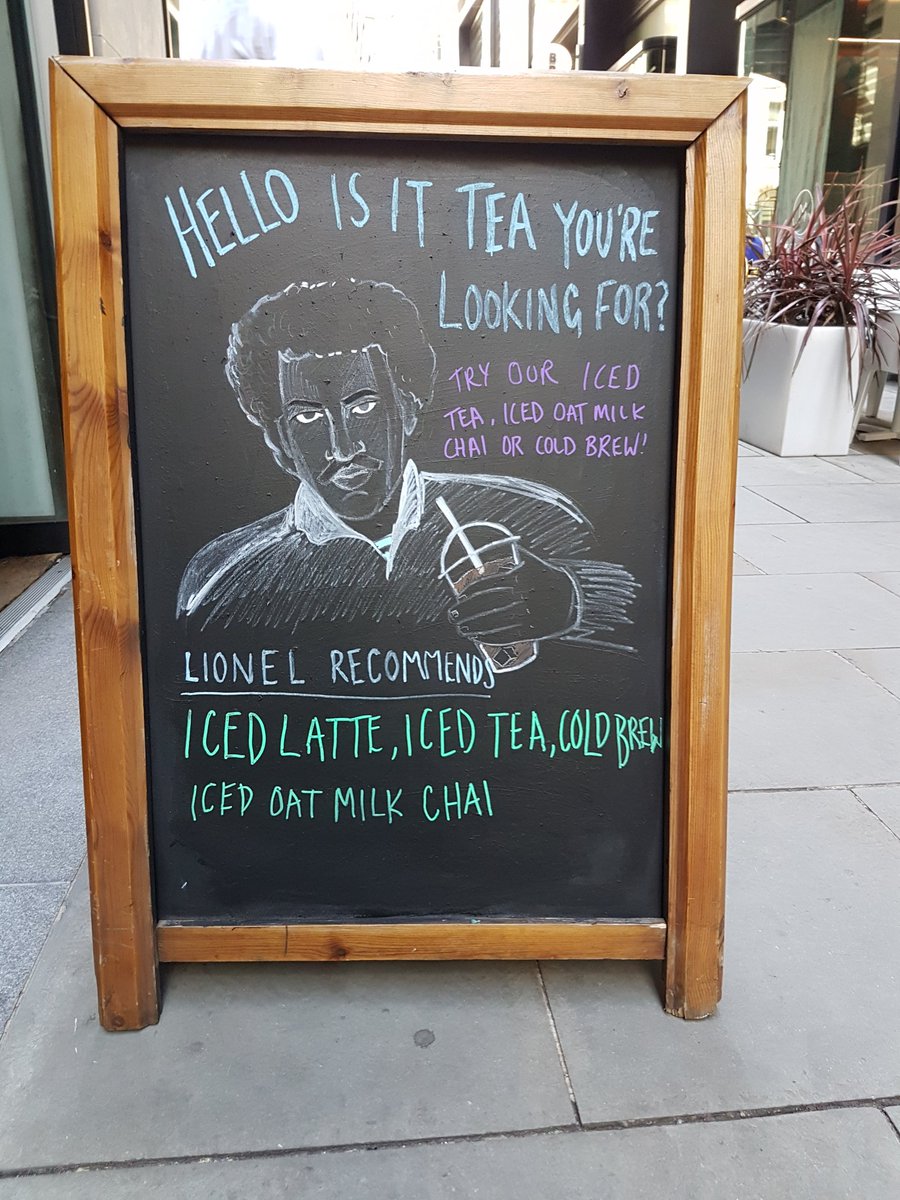 HELLO IS IT TEA YOU'RE
LOOKING FOR?
TRY OUR ICED
TEA, ICED OAT MILK
CHAI OR COLD BREW!
LIONEL RECOMMENDS
ICED LATTE, ICED TEA, COLD BREW
ICED OAT MILK CHAI